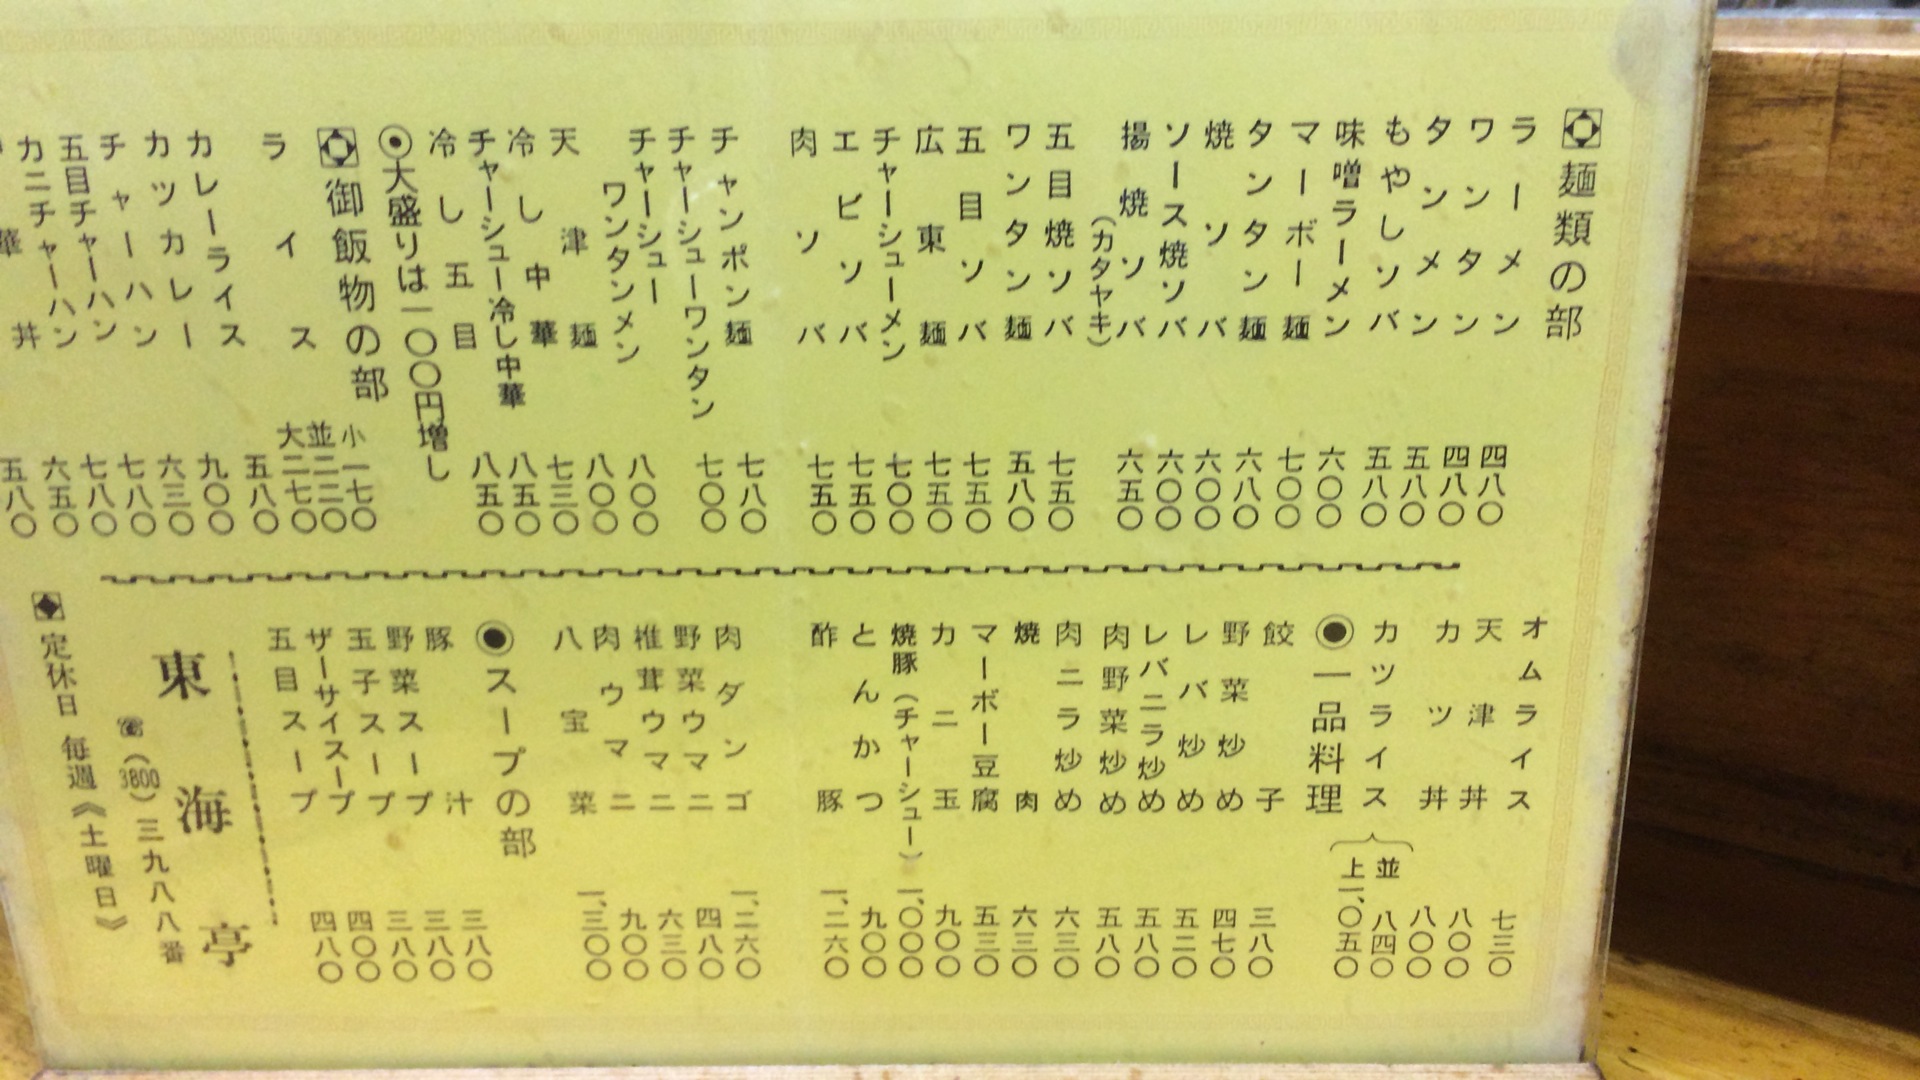 麺類の部
ラーメン 四八〇
ワンタン 四八〇
タンメン 五八〇
もやしソバ 五八〇
味噌ラーメン 六〇〇
マーボー麺 七〇〇
タンタン麺 六八〇
焼ソバ 六〇〇
ソース焼ソバ 六〇〇
揚焼ソバ(カタヤキ) 六五〇
五目焼ソバ 七五〇
ワンタン麺 五八〇
五目ソバ 七五〇
広東麺 七五〇
チャーシューメン 七〇〇
エビソバ 七五〇
肉ソバ 七五〇
チャンポン麺 七八〇
チャーシューワンタン 七〇〇
チャーシューワンタンメン 八〇〇
天津麺 八〇〇
冷し中華 七三〇
チャーシュー冷し中華 八五〇
冷し五目 八五〇
◉大盛りは一〇〇円増し
御飯物の部
ライス 小一七〇 並二二〇 大二七〇
カレーライス 五八〇
カツカレー 九〇〇
チャーハン 六三〇
五目チャーハン 七八〇
カニチャーハン 七八〇
華丼 六五〇
五八〇
オムライス 七三〇
天津丼 八〇〇
カツ丼 八〇〇
カツライス 並 八四〇 上 一、〇五〇
◉一品料理
餃子 三八〇
野菜炒め 四七〇
レバ炒め 五二〇
レバニラ炒め 五八〇
肉野菜炒め 五八〇
肉ニラ炒め 六三〇
焼肉 六三〇
マーボー豆腐 五三〇
カニ玉 九〇〇
焼豚(チャーシュー) 一、〇〇〇
とんかつ 九〇〇
酢豚 一、二六〇
肉ダンゴ 一、二六〇
野菜ウマニ 四八〇
椎茸ウマニ 六三〇
肉ウマニ 九〇〇
八宝菜 一、三〇〇
◉スープの部
豚汁 三八〇
野菜スープ 三八〇
玉子スープ 三八〇
ザーサイスープ 四〇〇
五目スープ 四八〇
東海亭
☎(3800)三九八八番
定休日 毎週《土曜日》